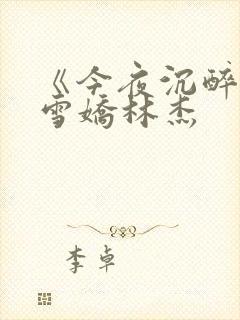 《今夜沉醉
雪嬌林杰
李卓